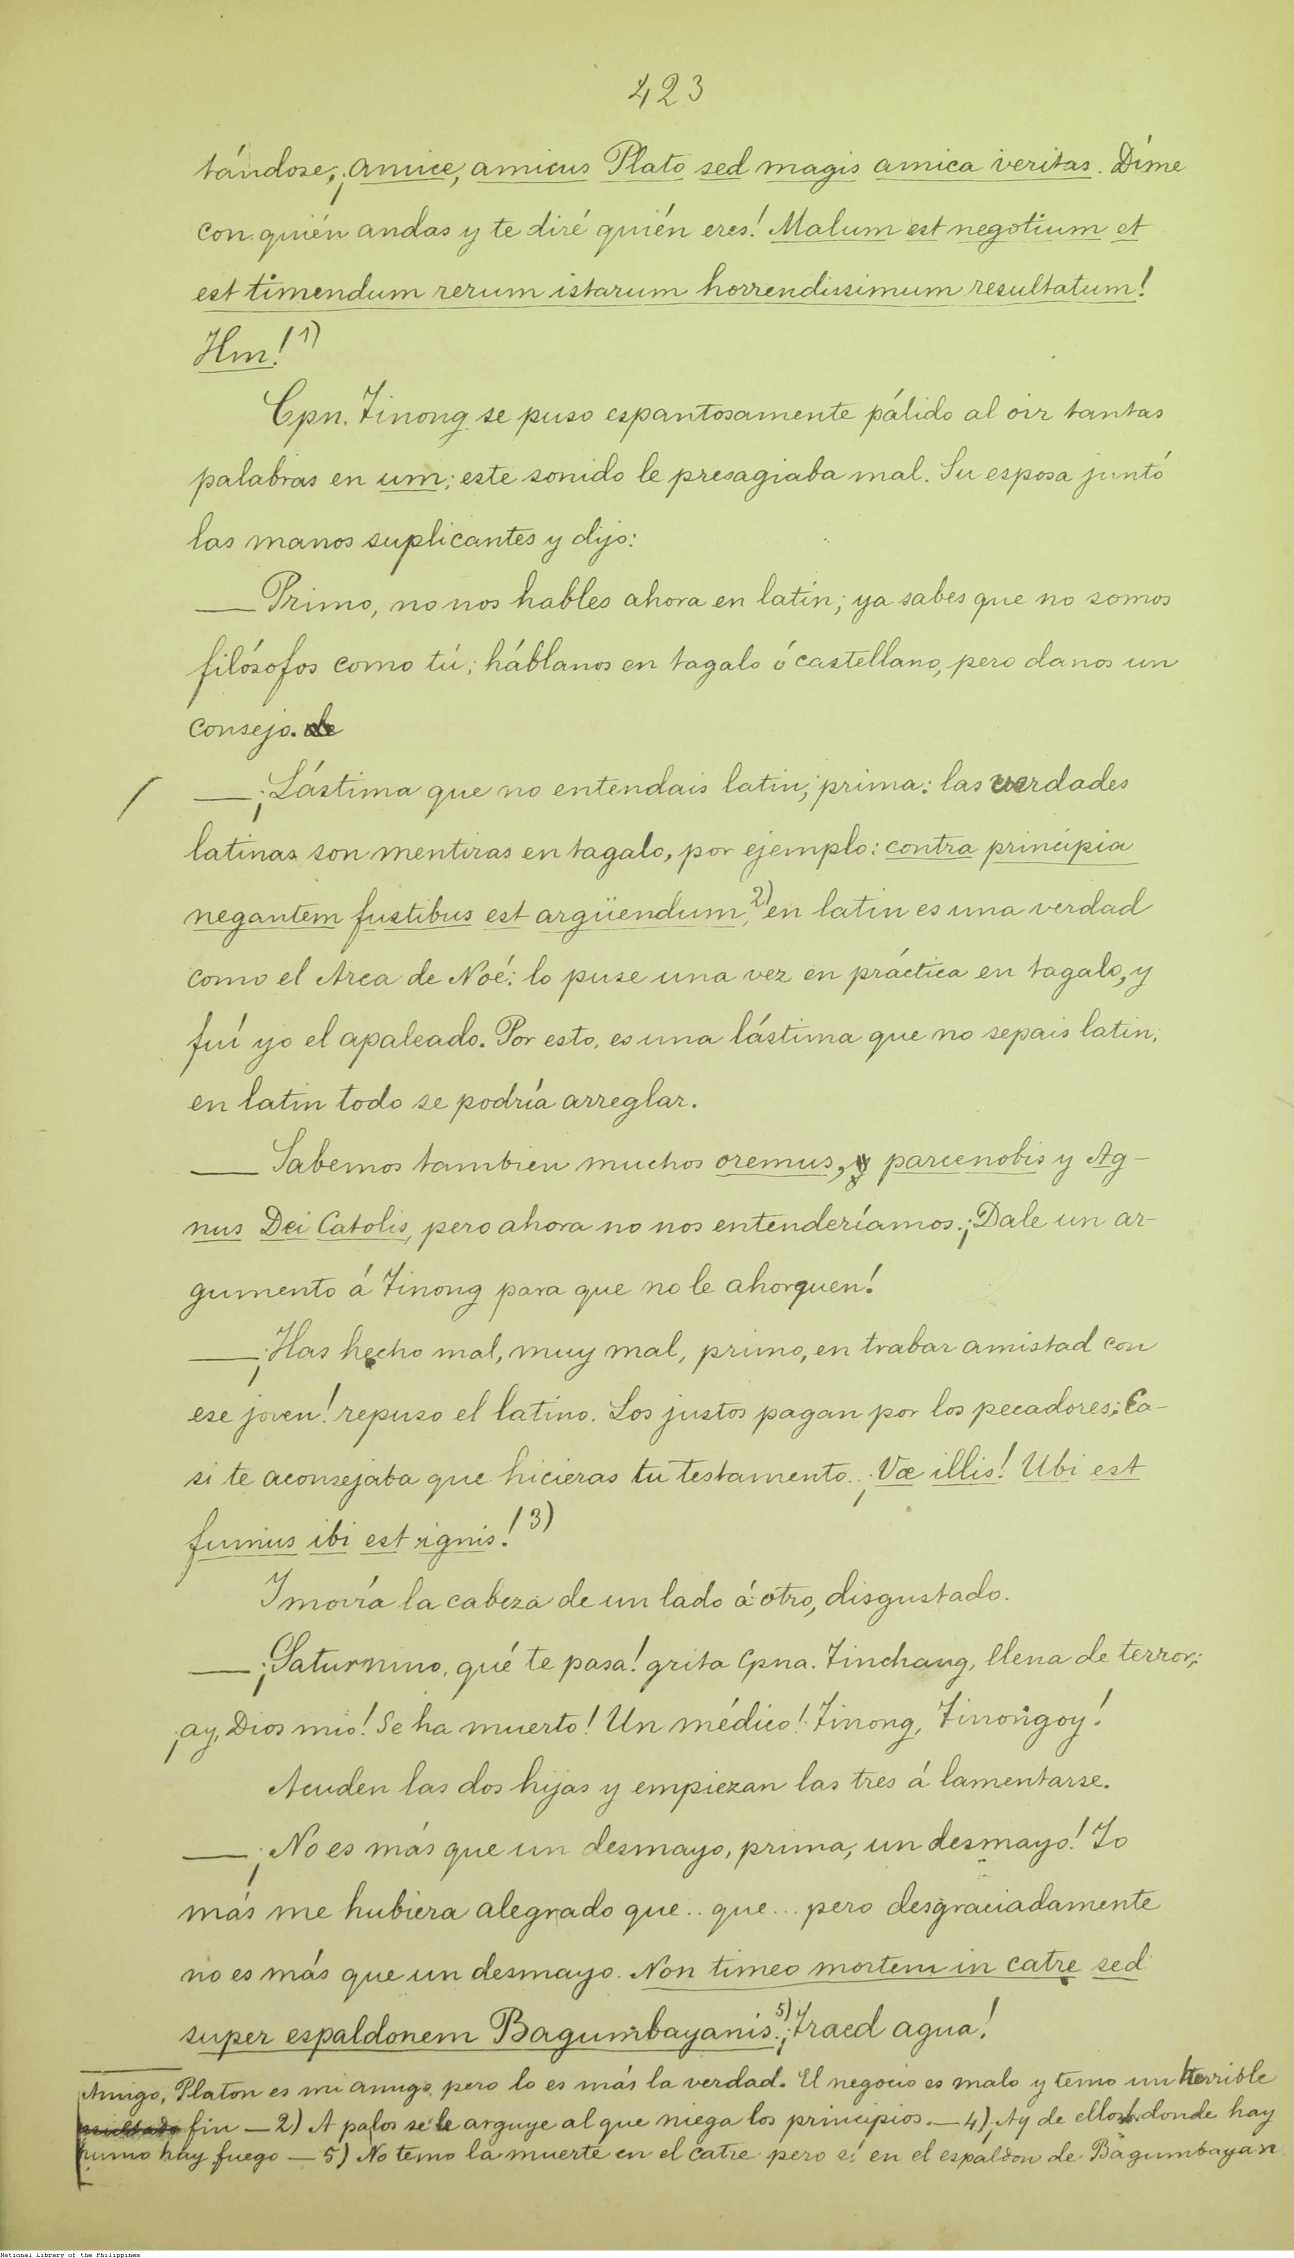 423
tándose, ¡amice, amicus Plato sed magis amica veritas. Díme
con quién andas y te diré quién eres! Malum est negotium et
est timendum rerum istarum horrendissimum resultatum!
Hm! 1)
Cpn. Tinong se puso espantosamente pálido al oir tantas
palabras en um; este sonido le presagiaba mal. Su esposa juntó
las manos suplicantes y dijo:
— Primo, no nos hables ahora en latin; ya sabes que no somos
filósofos como tú; háblanos en tagalo ó castellano, pero danos un
consejo. de
— ¡Lástima que no entendais latin, prima: las verdades
latinas son mentiras en tagalo, por ejemplo: contra principia
negantem fustibus est argüendum, 2) en latin es una verdad
como el Arca de Noé: lo puse una vez en práctica en tagalo, y
fuí yo el apaleado. Por esto, es una lástima que no sepais latin,
en latin todo se podría arreglar.
— Sabemos tambien muchos oremus, y parcenobis y Ag-
nus Dei Catolis, pero ahora no nos entenderíamos. ¡Dale un ar-
gumento á Tinong para que no le ahorquen!
— ¡Has hecho mal, muy mal, primo, en trabar amistad con
ese joven! repuso el latino. Los justos pagan por los pecadores; Ca-
si te aconsejaba que hicieras tu testamento.. ¡Væ illis! Ubi est
fumus ibi est ignis! 3)
I movía la cabeza de un lado á otro, disgustado.
— ¡Saturnino, qué te pasa! grita Cpna. Tinchang, llena de terror;
¡ay, Dios mio! Se ha muerto! Un médico! Tinong, Tinongoy!
Acuden las dos hijas y empiezan las tres á lamentarse.
— ¡No es más que un desmayo, prima, un desmayo! Yo
más me hubiera alegrado que.. que... pero desgraciadamente
no es más que un desmayo. Non timeo mortem in catre sed
super espaldonem Bagumbayanis. 5) ¡Traed agua!
Amigo, Platon es mi amigo pero lo es más la verdad. El negocio es malo y temo un horrible
resultado fin — 2) A palos se le arguye al que niega los principios. — 4) ¡Ay de ellos! donde hay
humo hay fuego — 5) No temo la muerte en el catre pero sí en el espaldon de Bagumbayan
National Library of the Philippines